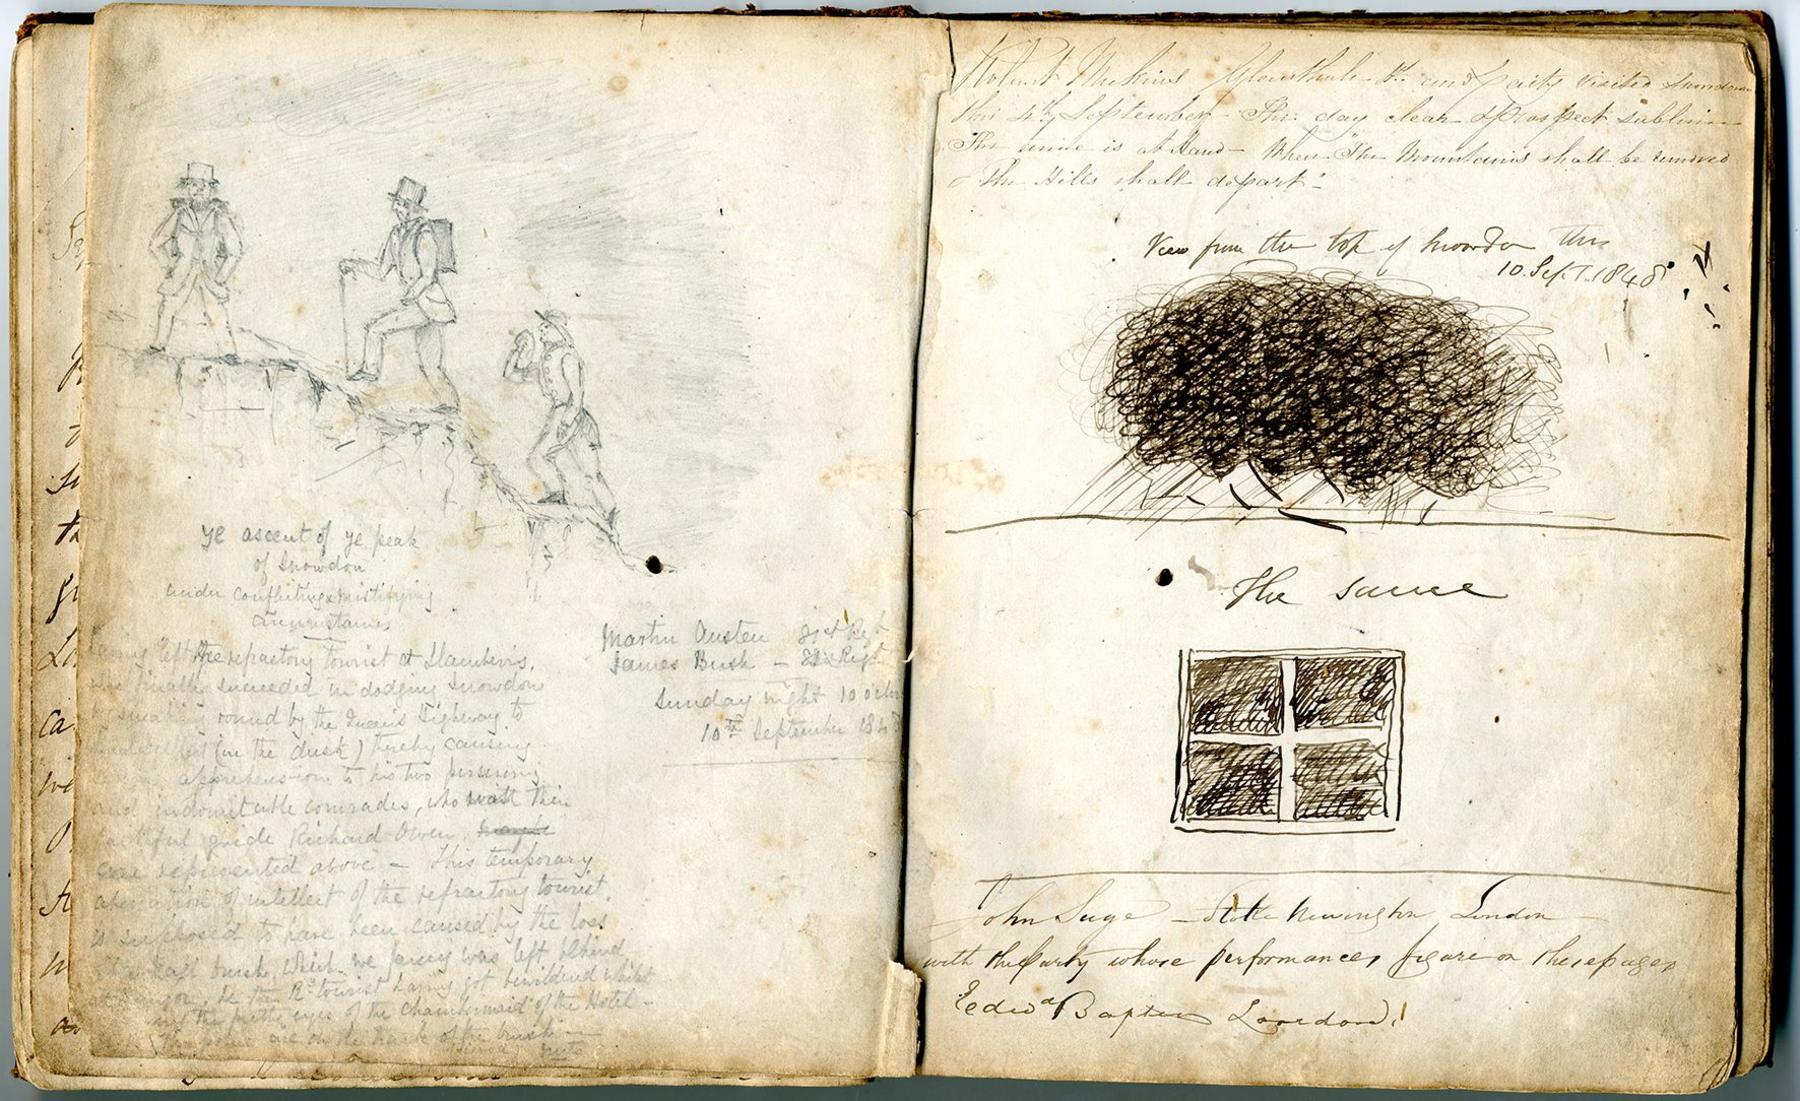 ye ascent of ye peak
of Snowdon
under conflicting & mistifying
circumstances
having left the refractory tourist at Llanberis,
who finally succeeded in dodging Snowdon
by sneaking round by the Queen's Highway to
(in the dusk) thereby causing
apprehension to his two pursuing
and indomitable comrades, who with their
faithful guide Richard Owen,
are represented above – This temporary
aberration of intellect of the refractory tourist.
is supposed to have been caused by the loss
brush, which we fancy was left behind
at Bangor, he the Rd tourist having got bewildered whilst
the pretty eyes of the Chambermaid of the Hotel –
on the back of the brush –
Martin Austen
James Bush –
Sunday night 10 o'clock
10th September 184
Robert Mickins and party visited Snowdon
this 4th September – The day clear & Prospect sublime
The time is at Hand – When "The Mountains shall be removed
& The Hills shall depart" –
View from the top of Snowdon this
10. Sept. 1848
The same
John Suge – Stoke Newington London –
with the party whose performances figure on these pages
Edwd Baxter London!